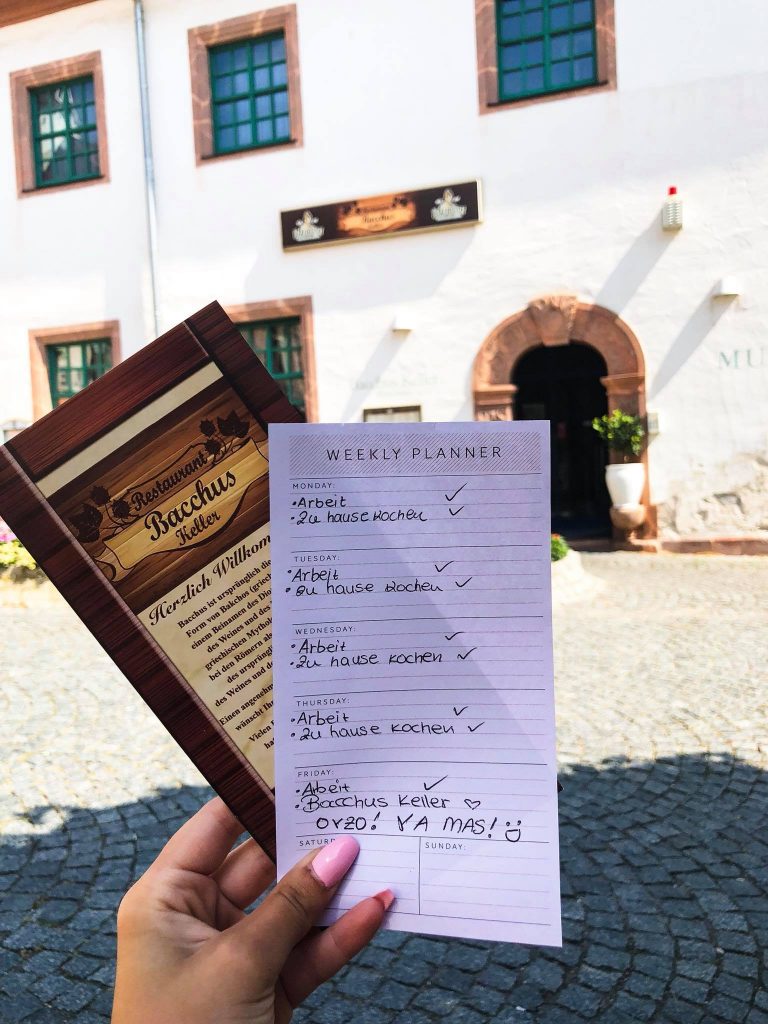 Bacchus
MU
Restaurant
Bacchus
Keller
Herzlich Willkom
Bacchus ist ursprünglich die
Form von Bakchos (griech
einem Beinamen des Dio
des Weines und des
griechischen Mytholo
bei den Römern als
des ursprüngl
des Weines und de
Einen angenehm
wünscht Ihn
Vielen
WEEKLY PLANNER
MONDAY:
• Arbeit ✓
• Zu hause kochen ✓
TUESDAY:
• Arbeit ✓
• Zu hause kochen ✓
WEDNESDAY:
• Arbeit ✓
• Zu hause kochen ✓
THURSDAY:
• Arbeit ✓
• Zu hause kochen ✓
FRIDAY:
• Arbeit ✓
• Bacchus Keller ♡
OYZO! YA MAS! ☺
SATURD
SUNDAY: